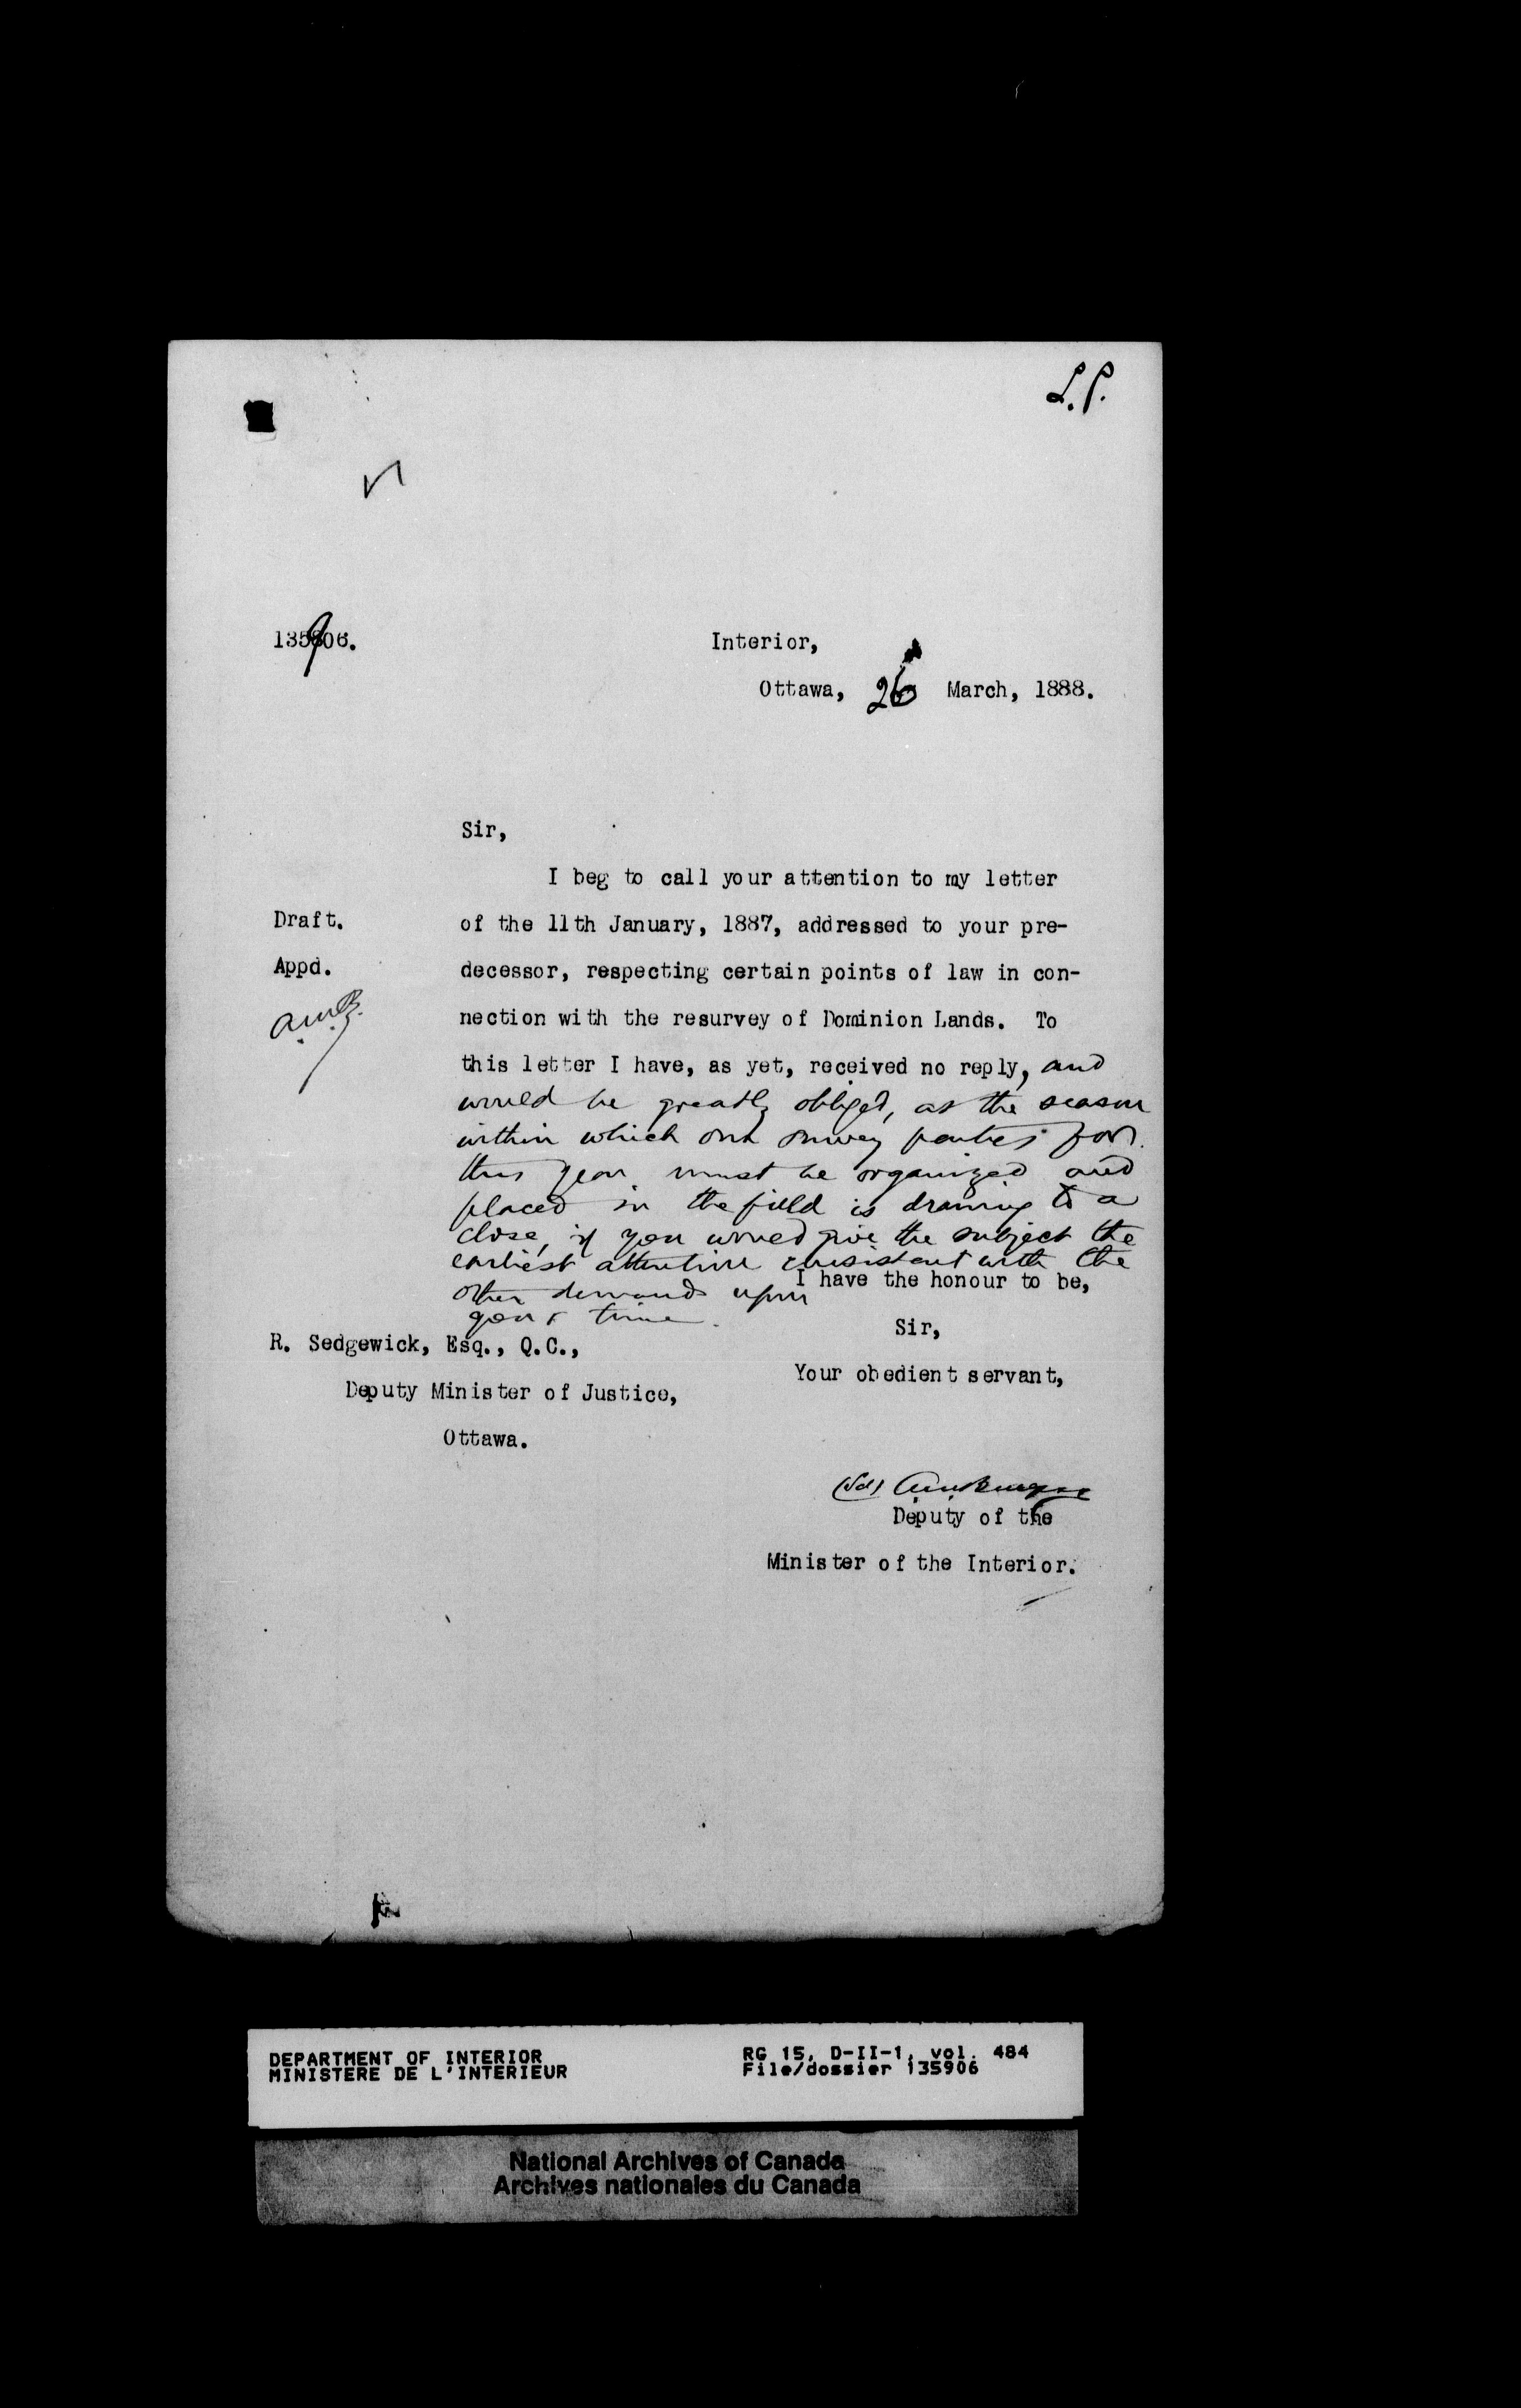 L.P.
135906.
Interior,
Ottawa, 26 March, 1888.
Sir,
I beg to call your attention to my letter
Draft.
of the 11th January, 1887, addressed to your pre-
Appd.
decessor, respecting certain points of law in con-
A.M.B.
nection with the resurvey of Dominion Lands. To
this letter I have, as yet, received no reply, and
would be greatly obliged, as the season
within which our survey parties for
this year must be organized and
placed in the field is drawing to a
close, if you would give the subject the
earliest attention consistent with the
other demands upon
your time.
I have the honour to be,
Sir,
Your obedient servant,
R. Sedgewick, Esq., Q.C.,
Deputy Minister of Justice,
Ottawa.
(Sd) A.M. Burgess
Deputy of the
Minister of the Interior.
DEPARTMENT OF INTERIOR
MINISTERE DE L'INTERIEUR
RG 15, D-II-1, vol. 484
File/dossier 135906
National Archives of Canada
Archives nationales du Canada